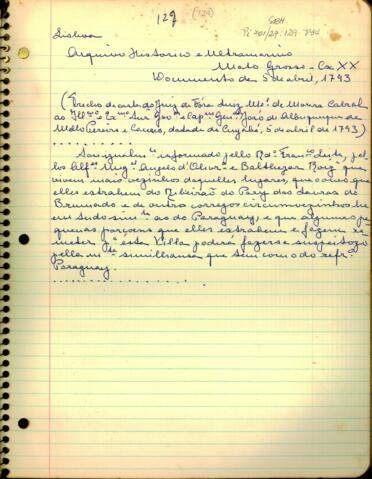 127 (127)
SBH
Lisboa
Arquivo Historico e Ultramarino
Mato Grosso - Cx XX
Documento de 5 de abril, 1793
(Trecho de carta do Juiz de Fóra Luiz Mel. de Moura Cabral
ao Illmo e Exmo Snr Govor e Capm Genal João de Albuquerque de
Mello Pereira e Caceres, datada de Cuyabá, 5 de abril de 1793)
. . . . . . . .
Sou igualmte informado pello Rdo Franco Leite, pel-
los Alfes Migel Angelo d'Olivra e Balthezar Roiz que
vivem mais vezinhos daquelles lugares, que o ouro que
elles estrahem do Ribeirão do Pary das lavras do
Brumado e de outro corregos circumvezinhos he
em tudo simile ao do Paraguay, e que algumas pe-
quenas porçoens que elles estrahem e fazem re-
meter pa esta Villa poderá fazerse suspeitozo
pella mta similhansa que tem com o do refrdo
Paraguay.
. . . . . . . . . . . . .